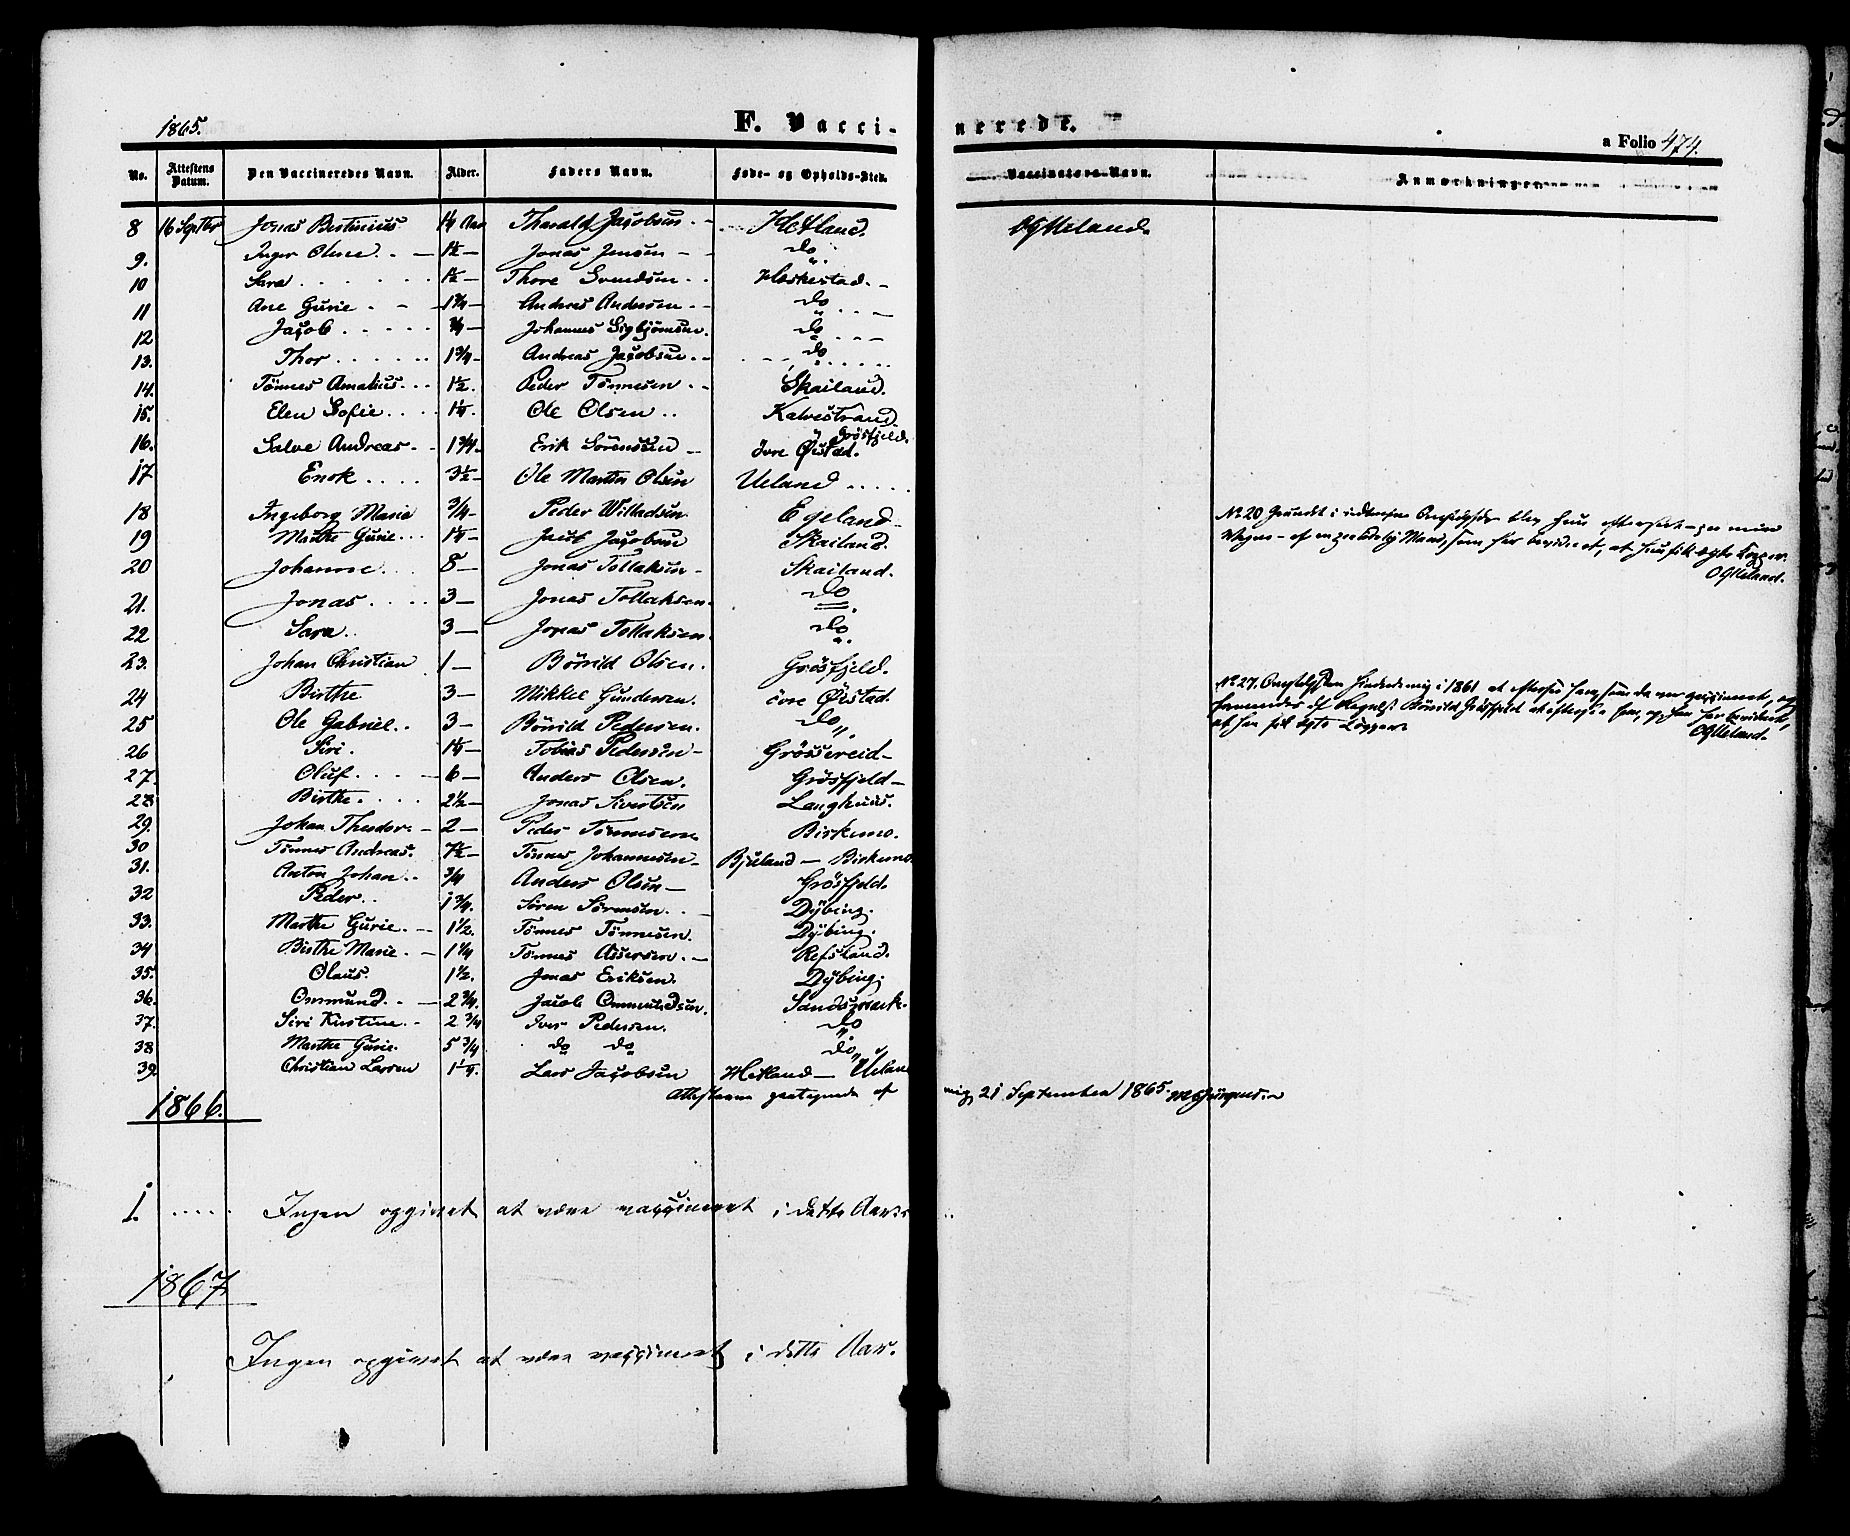 1865. F. Vaccinerede. a Folio 474.
No. Attestens Datum. Den Vaccineredes Navn. Alder. Faders Navn. Føde- og Opholds-Sted. Vaccinators Navn. Anmærkninger
8 16 Septbr Jonas Bertinius 1¼ Aar Tharald Jacobsen Hetland. OGUeland.
9. Inger Oline 1½ Jonas Jensen do
10 Sara 1½ Thore Svendsen Heskestad.
11 Ane Gurie 1¾ Anders Andersen do
12 Jacob ¾ Johannes Sigbjörnsen. do
13. Thor 1¾ Andreas Jacobsen do
14. Tönnes Amalius 1½ Peder Tönnesen Skailand.
15. Elen Sofie 1¼ Ole Olsen Kalvestrand
16. Salve Andreas 1¾ Erik Sörensen Grösfjeld. övre Øistad.
17. Enok 3½ Ole Martin Olsen Ueland
18 Ingeborg Maria ¾ Peder Willadsen Egeland
19 Marthe Gurie 1¼ Jacob Jacobsen Skailand.
20 Johanne 8 Jonas Tollaksen Skailand.
No 20
OGUeland.
21. Jonas 3 Jonas Tollaksen. do
22 Sara 3 Jonas Tollaksen. do
23. Johan Christian 1 Börild Olsen. Grösfjeld.
24 Birthe 3 Mikkel Gundersen. övre Øistad.
25 Ole Gabriel 3 Börild Pedersen. do
26 Siri 1¼ Tobias Pedersen Grössereid
No 27. i 1861
OGUeland.
27. Oluf 6 Anders Olsen. Grösfjeld
28 Birthe 2½ Jonas Sivertsen Langhuus.
29. Johan Theodor 2 Peder Tönnesen Birkemo.
30 Tönnes Andreas. 7½ Tönnes Johannesen Bjuland – Birkemo.
31. Anton Johan ¾ Anders Olsen Grösfjeld.
32 Peder 1¾ Sören Sörensen Dybing.
33. Marthe Gurie 1½ Tönnes Tönnesen. Dybing.
34 Birthe Marie 1¼ Tönnes Assersen Refsland.
35. Olaus 1½ Jonas Eriksen. Dybing.
36. Ommund 2¾ Jacob Ommundsen. Sandsmark.
37. Siri Kirstine 2¾ Iver Pedersen. do
38 Marthe Gurie. 5¾ do do do
39. Christian Larsen 1¼ Lars Jacobsen Hetland – Ueland
Attesterne af mig, 21 September 1865.
1866.
1. Ingen opgivet at være vaccineret i dette Aar
1867
Ingen opgivet at være vaccineret i dette Aar.